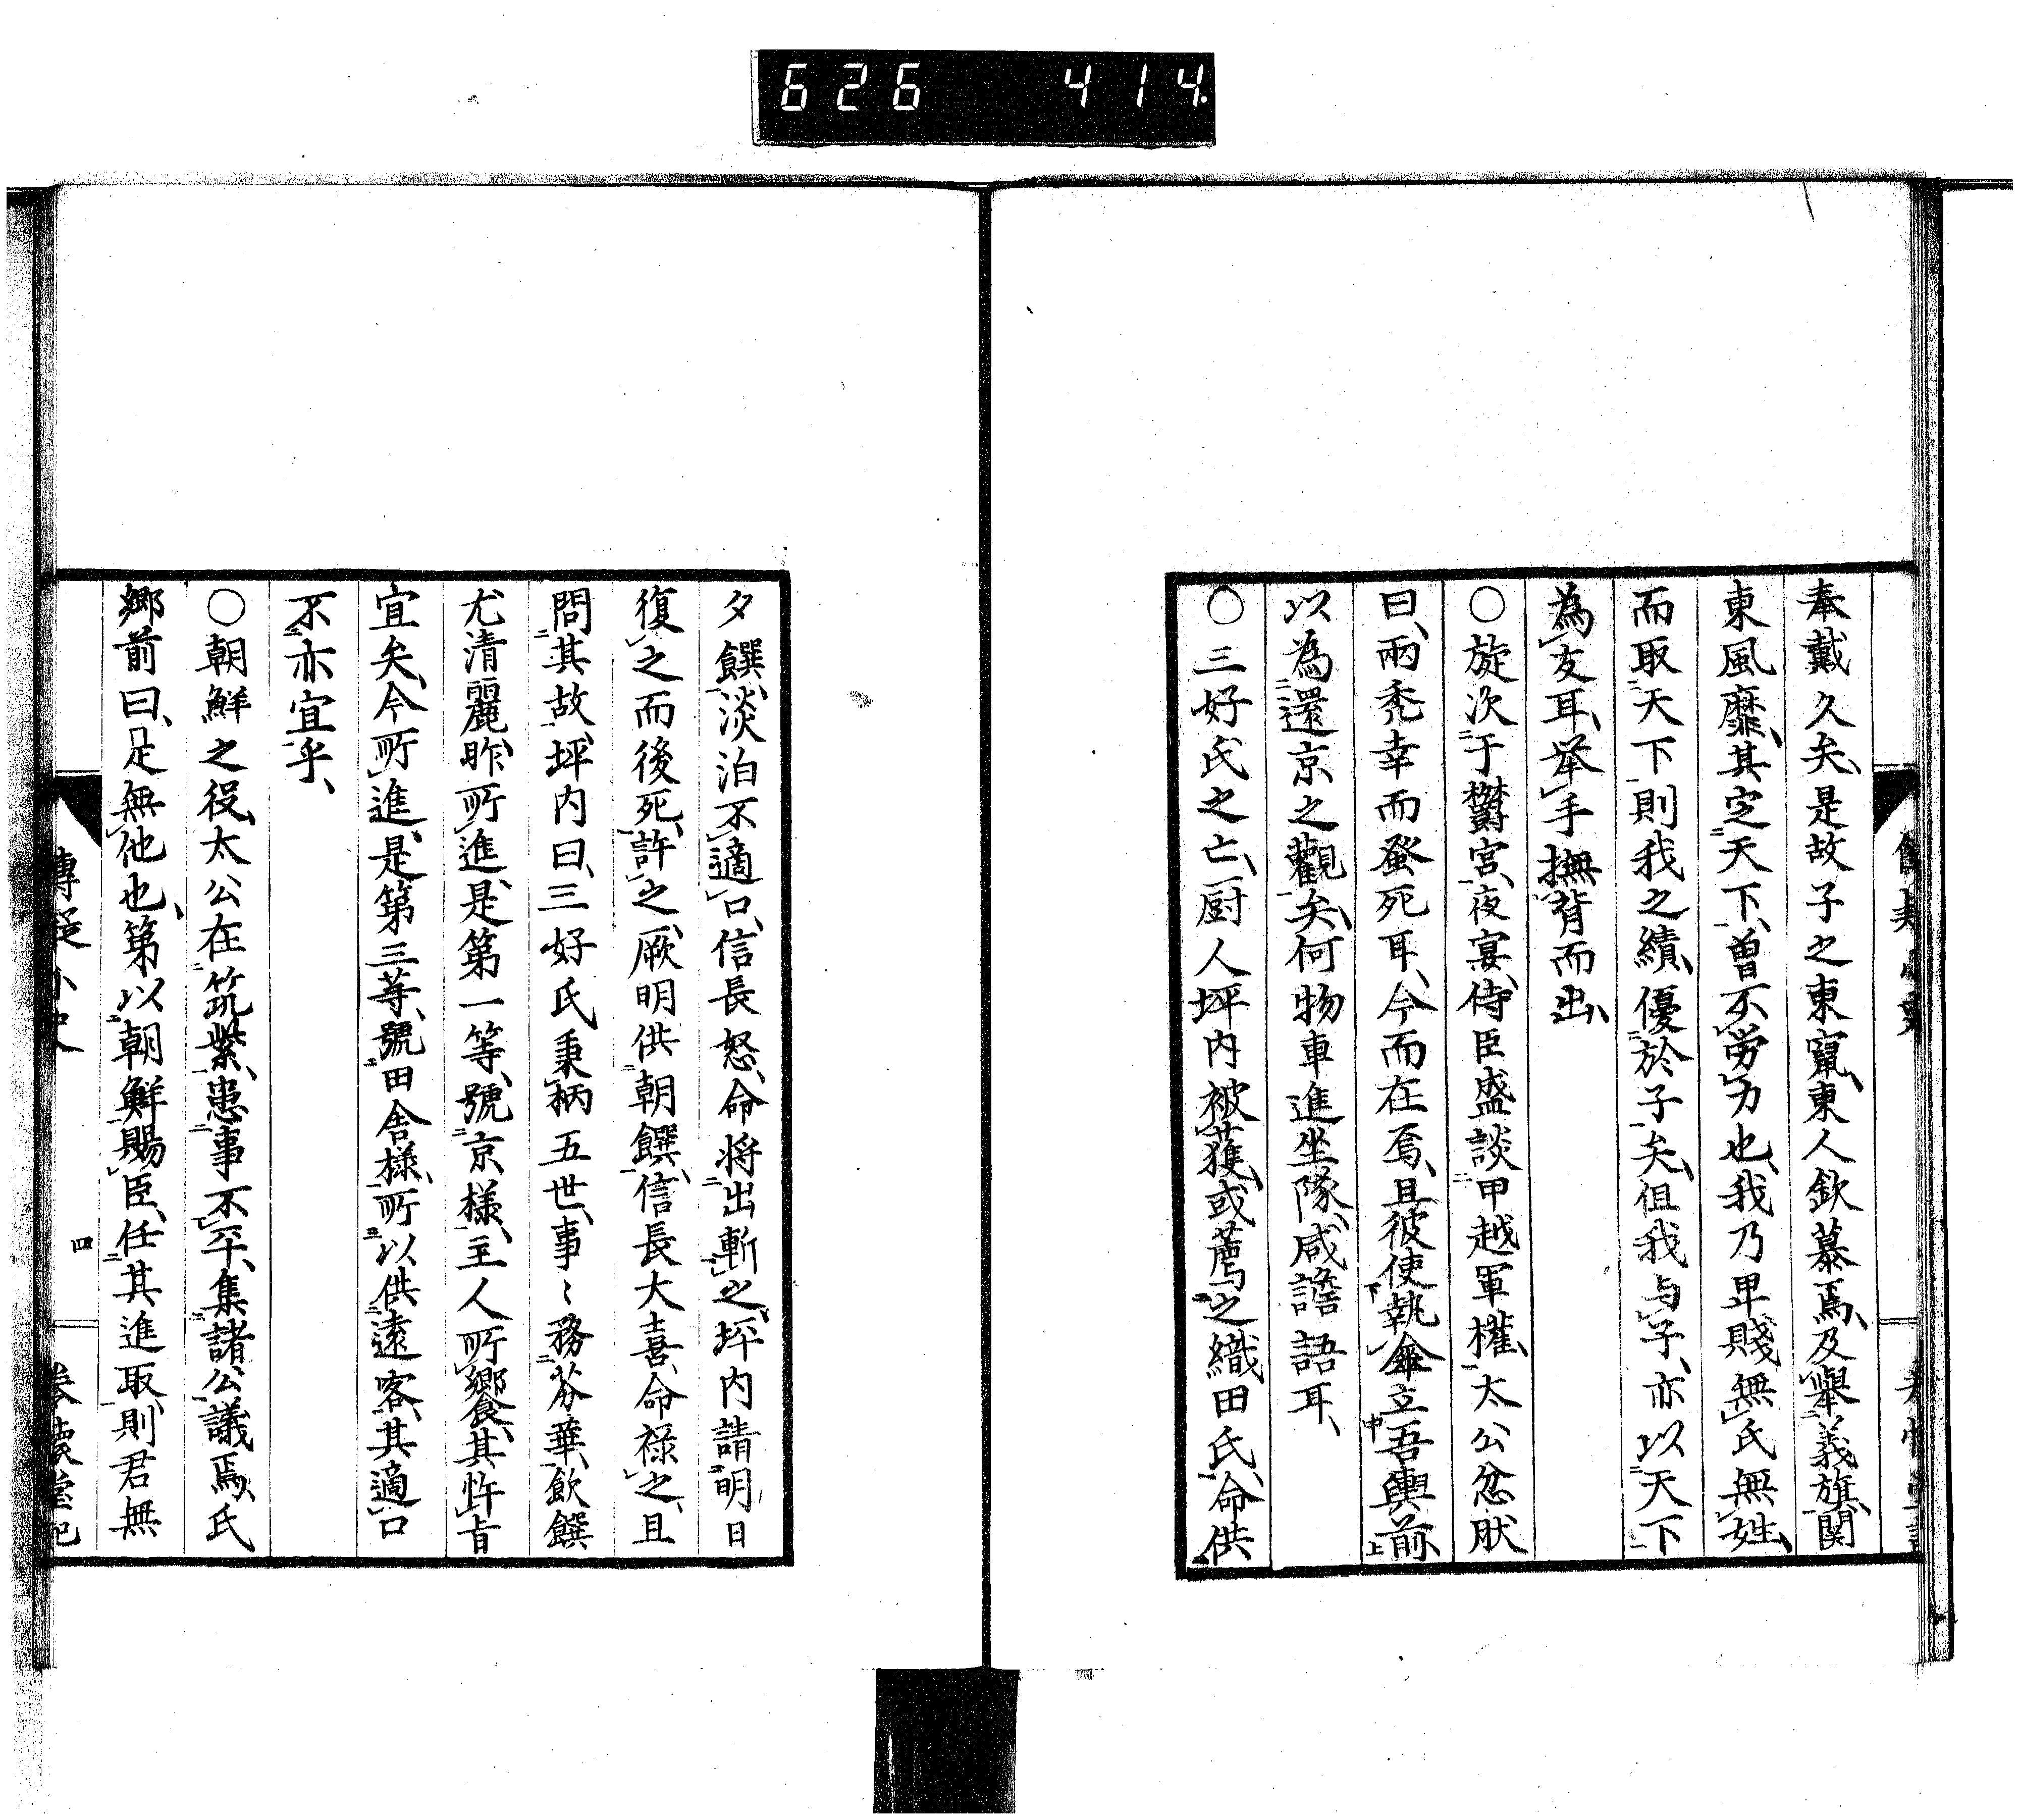 626 414.
奉戴久矣、是故子之東竄、東人欽慕焉、及舉義旗、関
東風靡、其定天下、曽不労力也、我乃卑賤無氏無姓、
而取天下、則我之績、優於子矣、但我与子、亦以天下
為友耳、挙手撫背而出、
〇旋次于欝宮、夜宴、侍臣盛談甲越軍權、太公忿肰
曰、兩禿幸而蚤死耳、今而在焉、且彼使執傘立吾輿前
以為還京之觀矣、何物車進坐隊、咸譫語耳、
〇三好氏之亡、厨人坪内被獲、或薦之織田氏、命供
夕饌、淡泊不適口、信長怒、命将出斬之、坪内請明日
復之而後死、許之、厥明供朝饌、信長大喜、命禄之、且
問其故、坪内曰、三好氏秉柄五世、事〻務芬華、飲饌
尤清麗、昨所進、是第一等、號京様、主人所嚮食、其忤旨
宜矣、今所進、是第三等、號田舎様、所以供遠客、其適口
不亦宜乎、
〇朝鮮之役、太公在筑紫、患事不平、集諸公議焉、氏
郷前曰、是無他也、第以朝鮮賜臣、任其進取、則君無
四